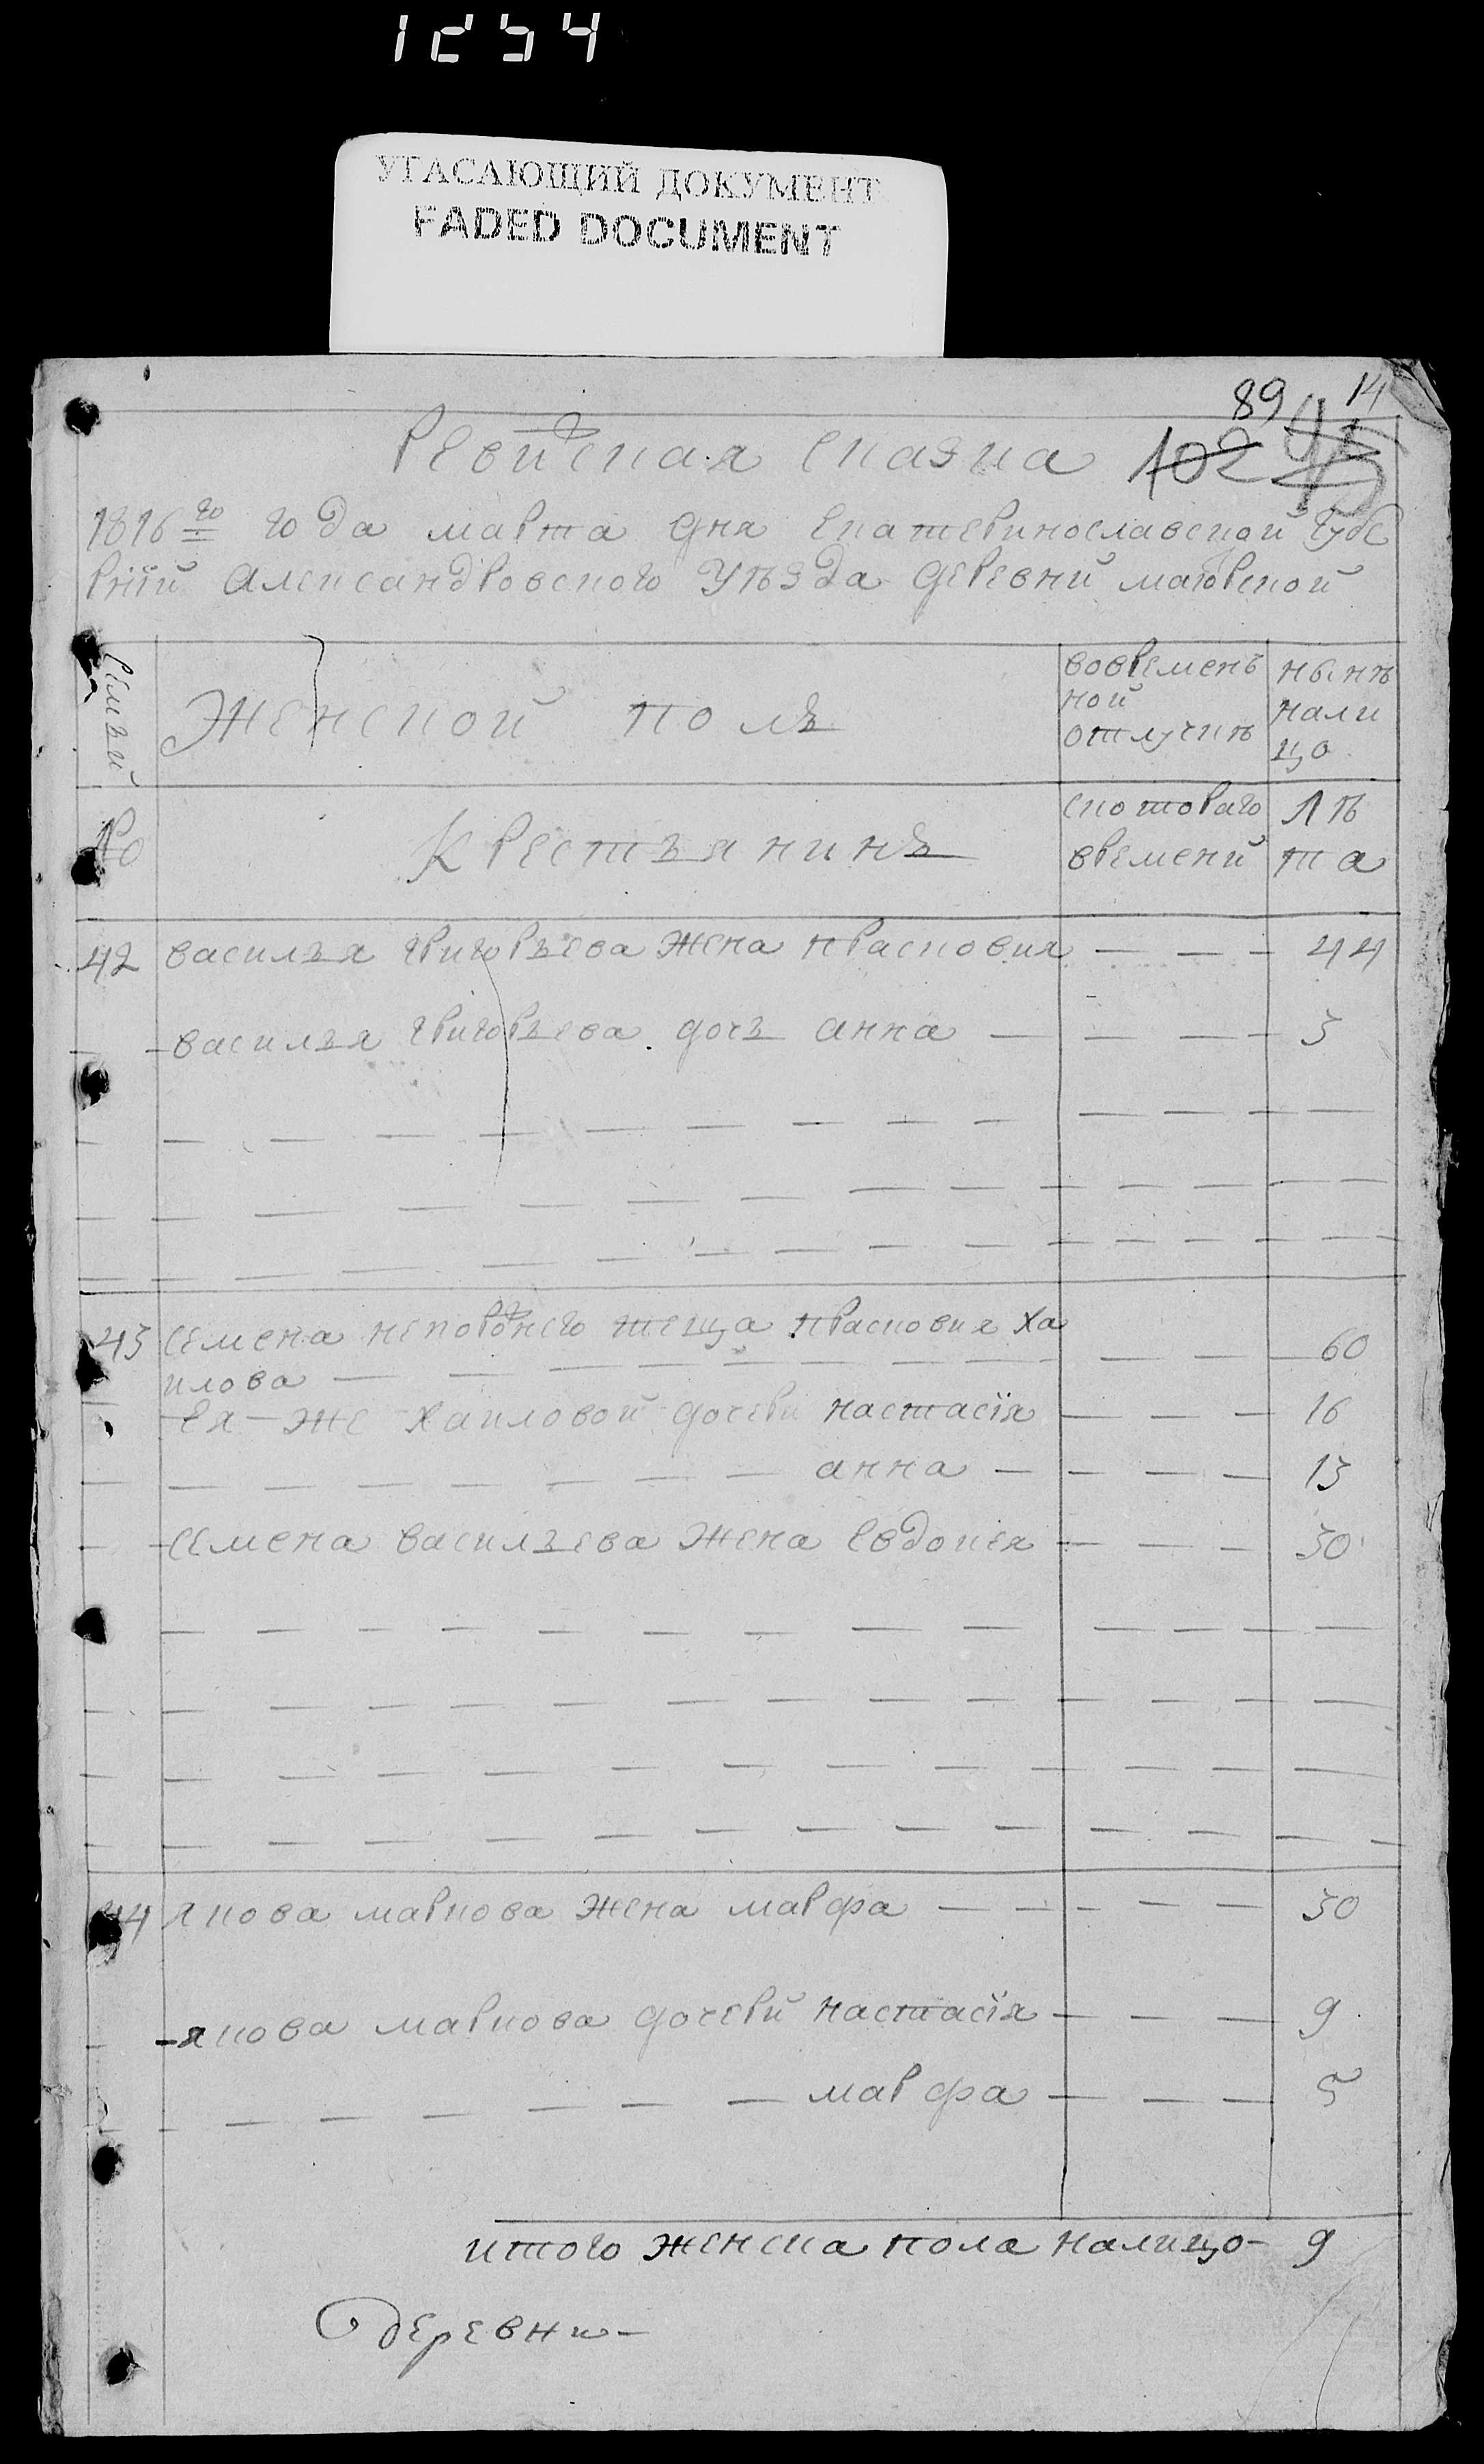 1254
УГАСАЮЩИЙ ДОКУМЕНТ
FADED DOCUMENT
89 14
102
Ревизская сказка
1816го года марта дня Екатеринославской Губе
рнїй Александровского Уѣзда деревни маіорской
семьи
Женской полъ
вовремень
ной
отлучкѣ
нынѣ
нали
цо
№
Крестьянинъ
скотораго
времени
лѣ
та
42 василья григорьева жена прасковия — — — 44
василья григорьева дочь анна — — — — 3
43 семена непорожнего теща прасковия ха
илова — — — 60
ея же хаиловой дочери настасїя — — — 16
анна — — — — 13
семена васильева жена евдокия — — — 30
44 якова маркова жена марфа — — — — — 30
якова маркова дочерй настасїя — — — 9
— марфа — — — 5
итого женска пола налицо — 9
Деревни —